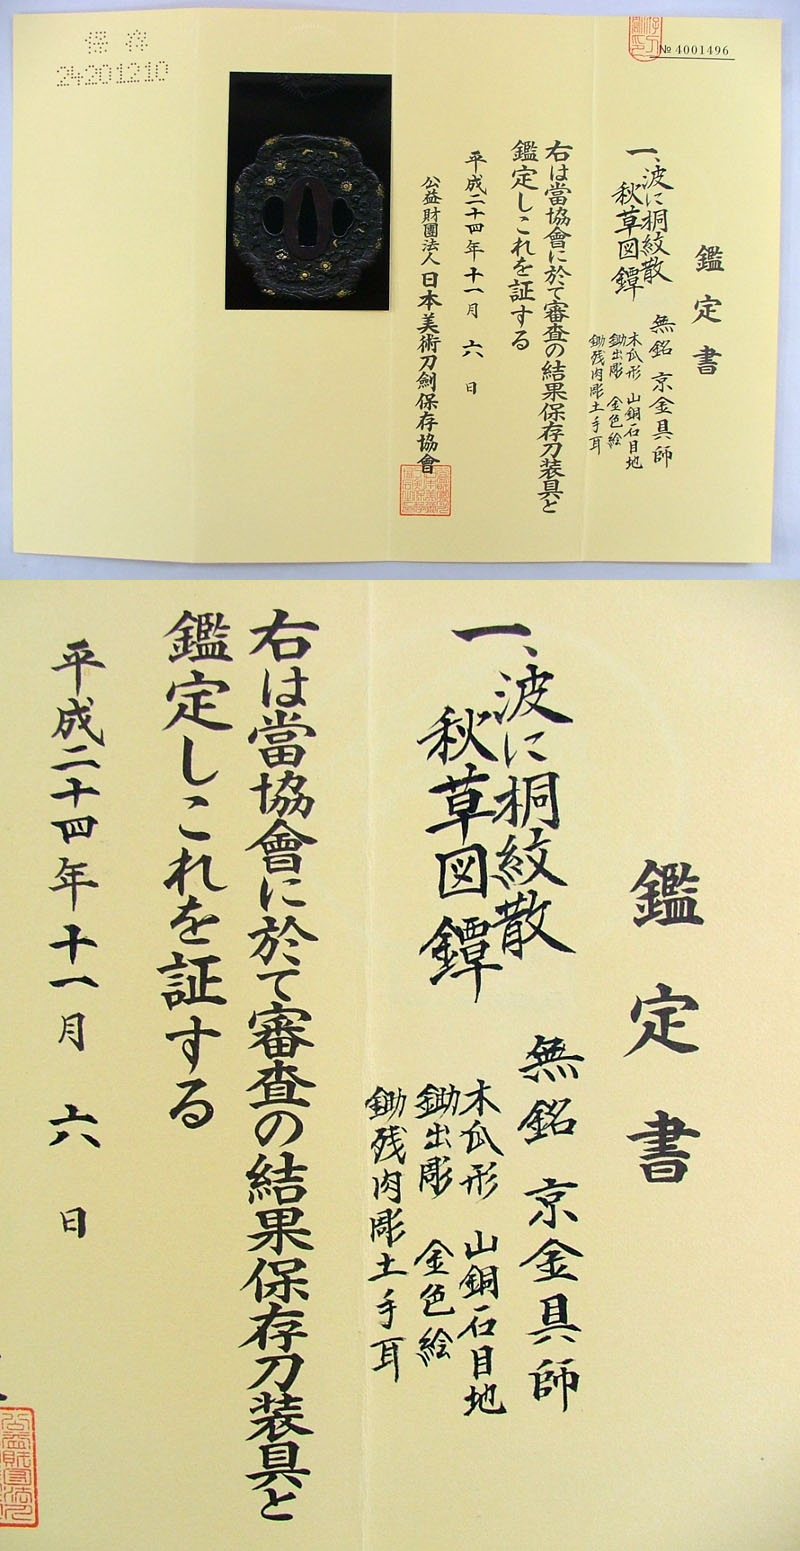 № 4001496
鑑定書
一、波に桐紋散
秋草図鐔
無銘 京金具師
木瓜形 山銅石目地
鋤出彫 金色絵
鋤残肉彫土手耳
右は當協會に於て審査の結果保存刀装具と
鑑定しこれを証する
平成二十四年十一月六日
公益財團法人 日本美術刀劍保存協會
保存
24201210
鑑定書
一、波に桐紋散
秋草図鐔
無銘 京金具師
木瓜形 山銅石目地
鋤出彫 金色絵
鋤残肉彫土手耳
右は當協會に於て審査の結果保存刀装具と
鑑定しこれを証する
平成二十四年十一月六日